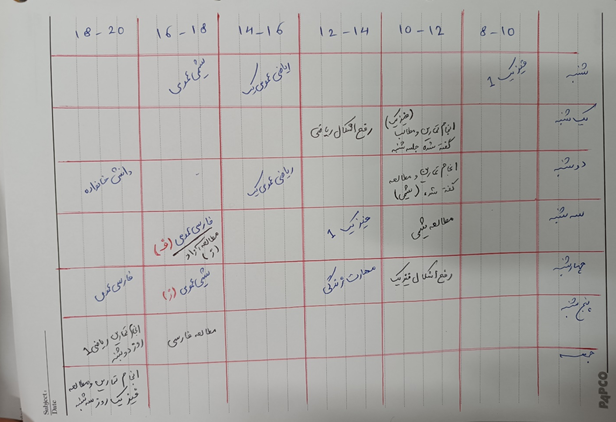 8-10 10-12 12-14 14-16 16-18 18-20
شنبه فیزیک 1 ریاضی عمومی یک شیمی عمومی
یک شنبه (فیزیک) انجام تمارین و مطالب گفته شده جلسه شنبه رفع اشکال ریاضی
دوشنبه انجام تمارین و مطالعه گفته شده (شیمی) ریاضی عمومی یک دانش خانواده
سه شنبه مطالعه شیمی فیزیک 1 فارسی عمومی (ف) مطالعه آزاد (ز)
چهارشنبه رفع اشکال فیزیک مهارت زندگی شیمی عمومی (ز) فارسی عمومی
پنج شنبه مطالعه فارسی انجام تمارین ریاضی 1 روز دوشنبه
جمعه انجام تمارین و مطالعه فیزیک 1 روز سه شنبه
Subject:
Date
PAPCO